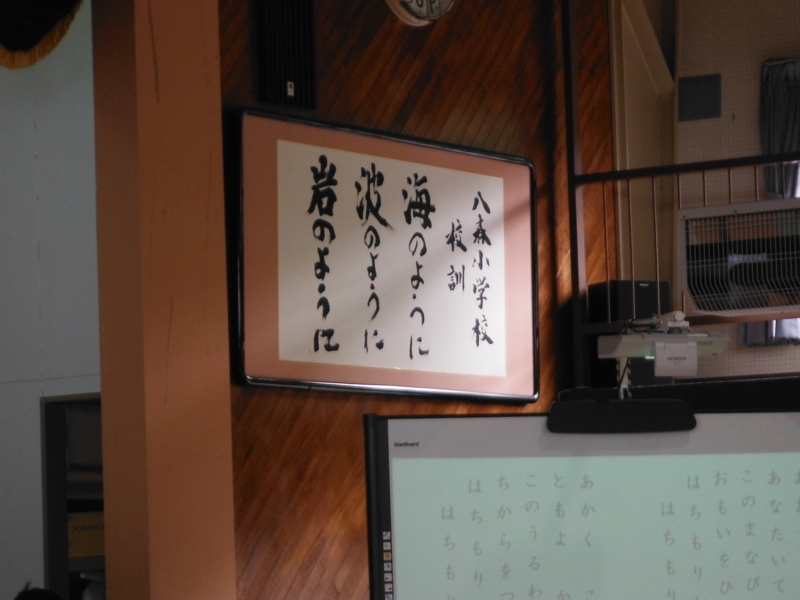 八森小学校
校訓
海のように
波のように
岩のように
StarBoard
HITACHI
あなたいて
このまなび
おもいをひ
はちもり
はちもり
あかく
ともよ か
このうるわ
ちからをつ
はちもり
はちもり